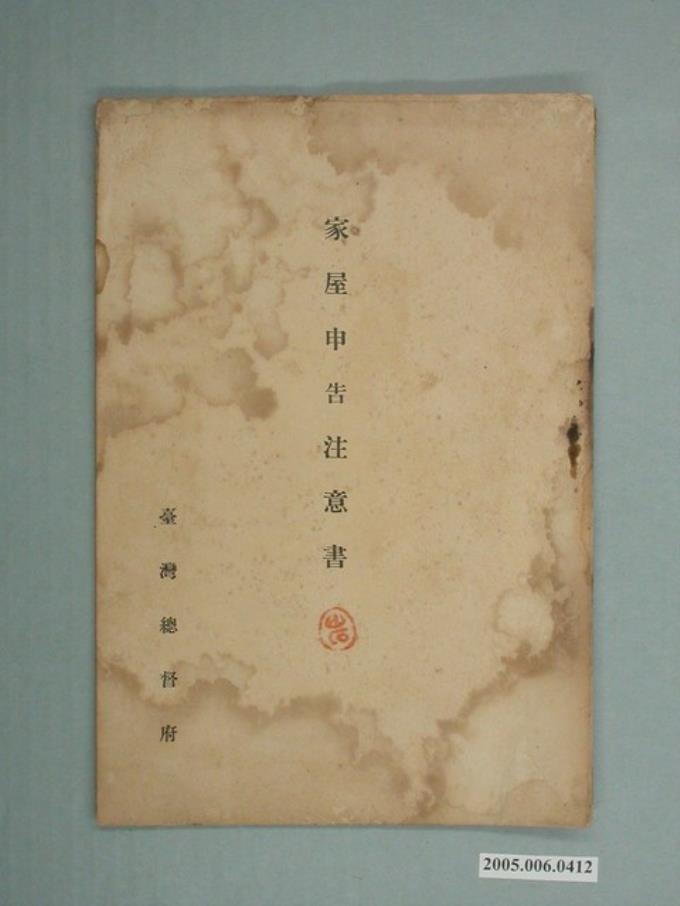 家屋申告注意書
臺灣總督府
2005.006.0412